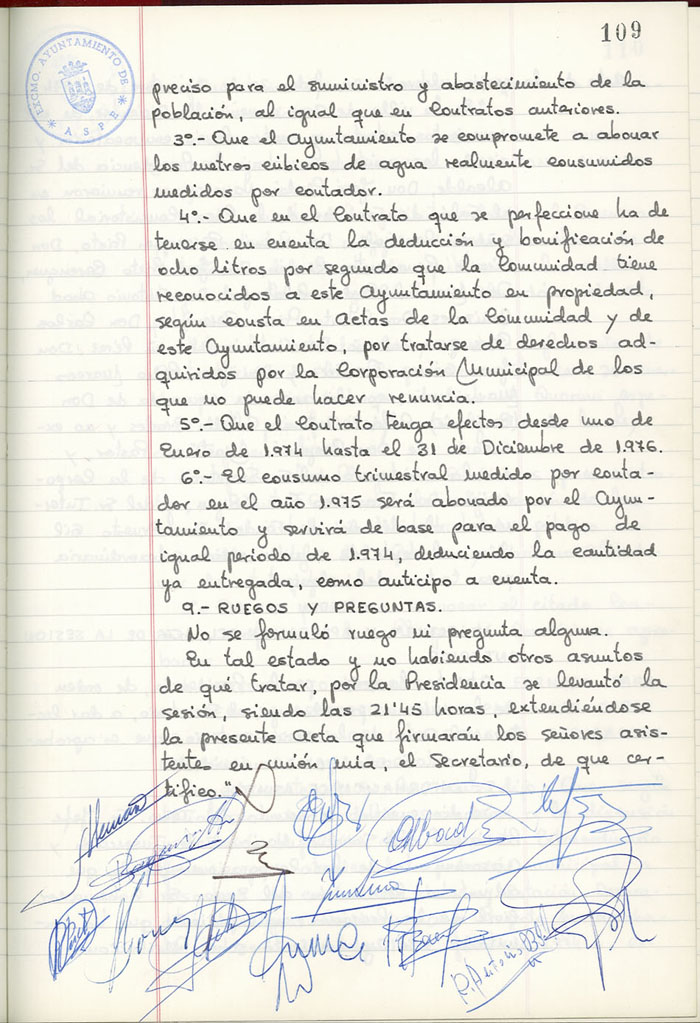 109
EXCMO. AYUNTAMIENTO DE
* ASPE *
preciso para el suministro y abastecimiento de la
población, al igual que en Contratos anteriores.
3º.- Que el Ayuntamiento se compromete a abonar
los metros cúbicos de agua realmente consumidos
medidos por contador.
4º.- Que en el Contrato que se perfeccione ha de
tenerse en cuenta la deducción y bonificación de
ocho litros por segundo que la Comunidad tiene
reconocidos a este Ayuntamiento en propiedad,
según consta en Actas de la Comunidad y de
este Ayuntamiento, por tratarse de derechos ad-
quiridos por la Corporación Municipal de los
que no puede hacer renuncia.
5º.- Que el Contrato tenga efectos desde uno de
Enero de 1.974 hasta el 31 de Diciembre de 1.976.
6º.- El consumo trimestral medido por conta-
dor en el año 1.975 será abonado por el Ayun-
tamiento y servirá de base para el pago de
igual período de 1.974, deduciendo la cantidad
ya entregada, como anticipo a cuenta.
9.- RUEGOS Y PREGUNTAS.
No se formuló ruego ni pregunta alguna.
En tal estado y no habiendo otros asuntos
de qué tratar, por la Presidencia se levantó la
sesión, siendo las 21'45 horas, extendiéndose
la presente Acta que firmarán los señores asis-
tentes en unión mía, el Secretario, de que cer-
tifico."
Abad